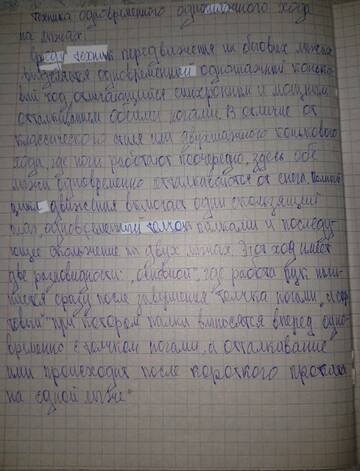 Техника одновременного одношажного хода
на лыжах.
Среди техник передвижения на беговых лыжах
выделяется одновременный одношажный конько-
вый ход, отличающийся синхронным и мощным
отталкиванием обеими ногами. В отличие от
классического стиля или двухшажного конькового
хода, где ноги работают поочередно, здесь обе
лыжи одновременно отталкиваются от снега. Полный
цикл движения включает один скользящий
шаг, одновременный толчок палками и последу-
ющее скольжение на двух лыжах. Этот ход имеет
две разновидности: "слитной", где работа рук начи-
нается сразу после завершения толчка ногами, и
товый" при котором палки выносятся вперед одно-
временно с толчком ногами, а отталкивание
ими происходит после короткого проката
на одной лыже"